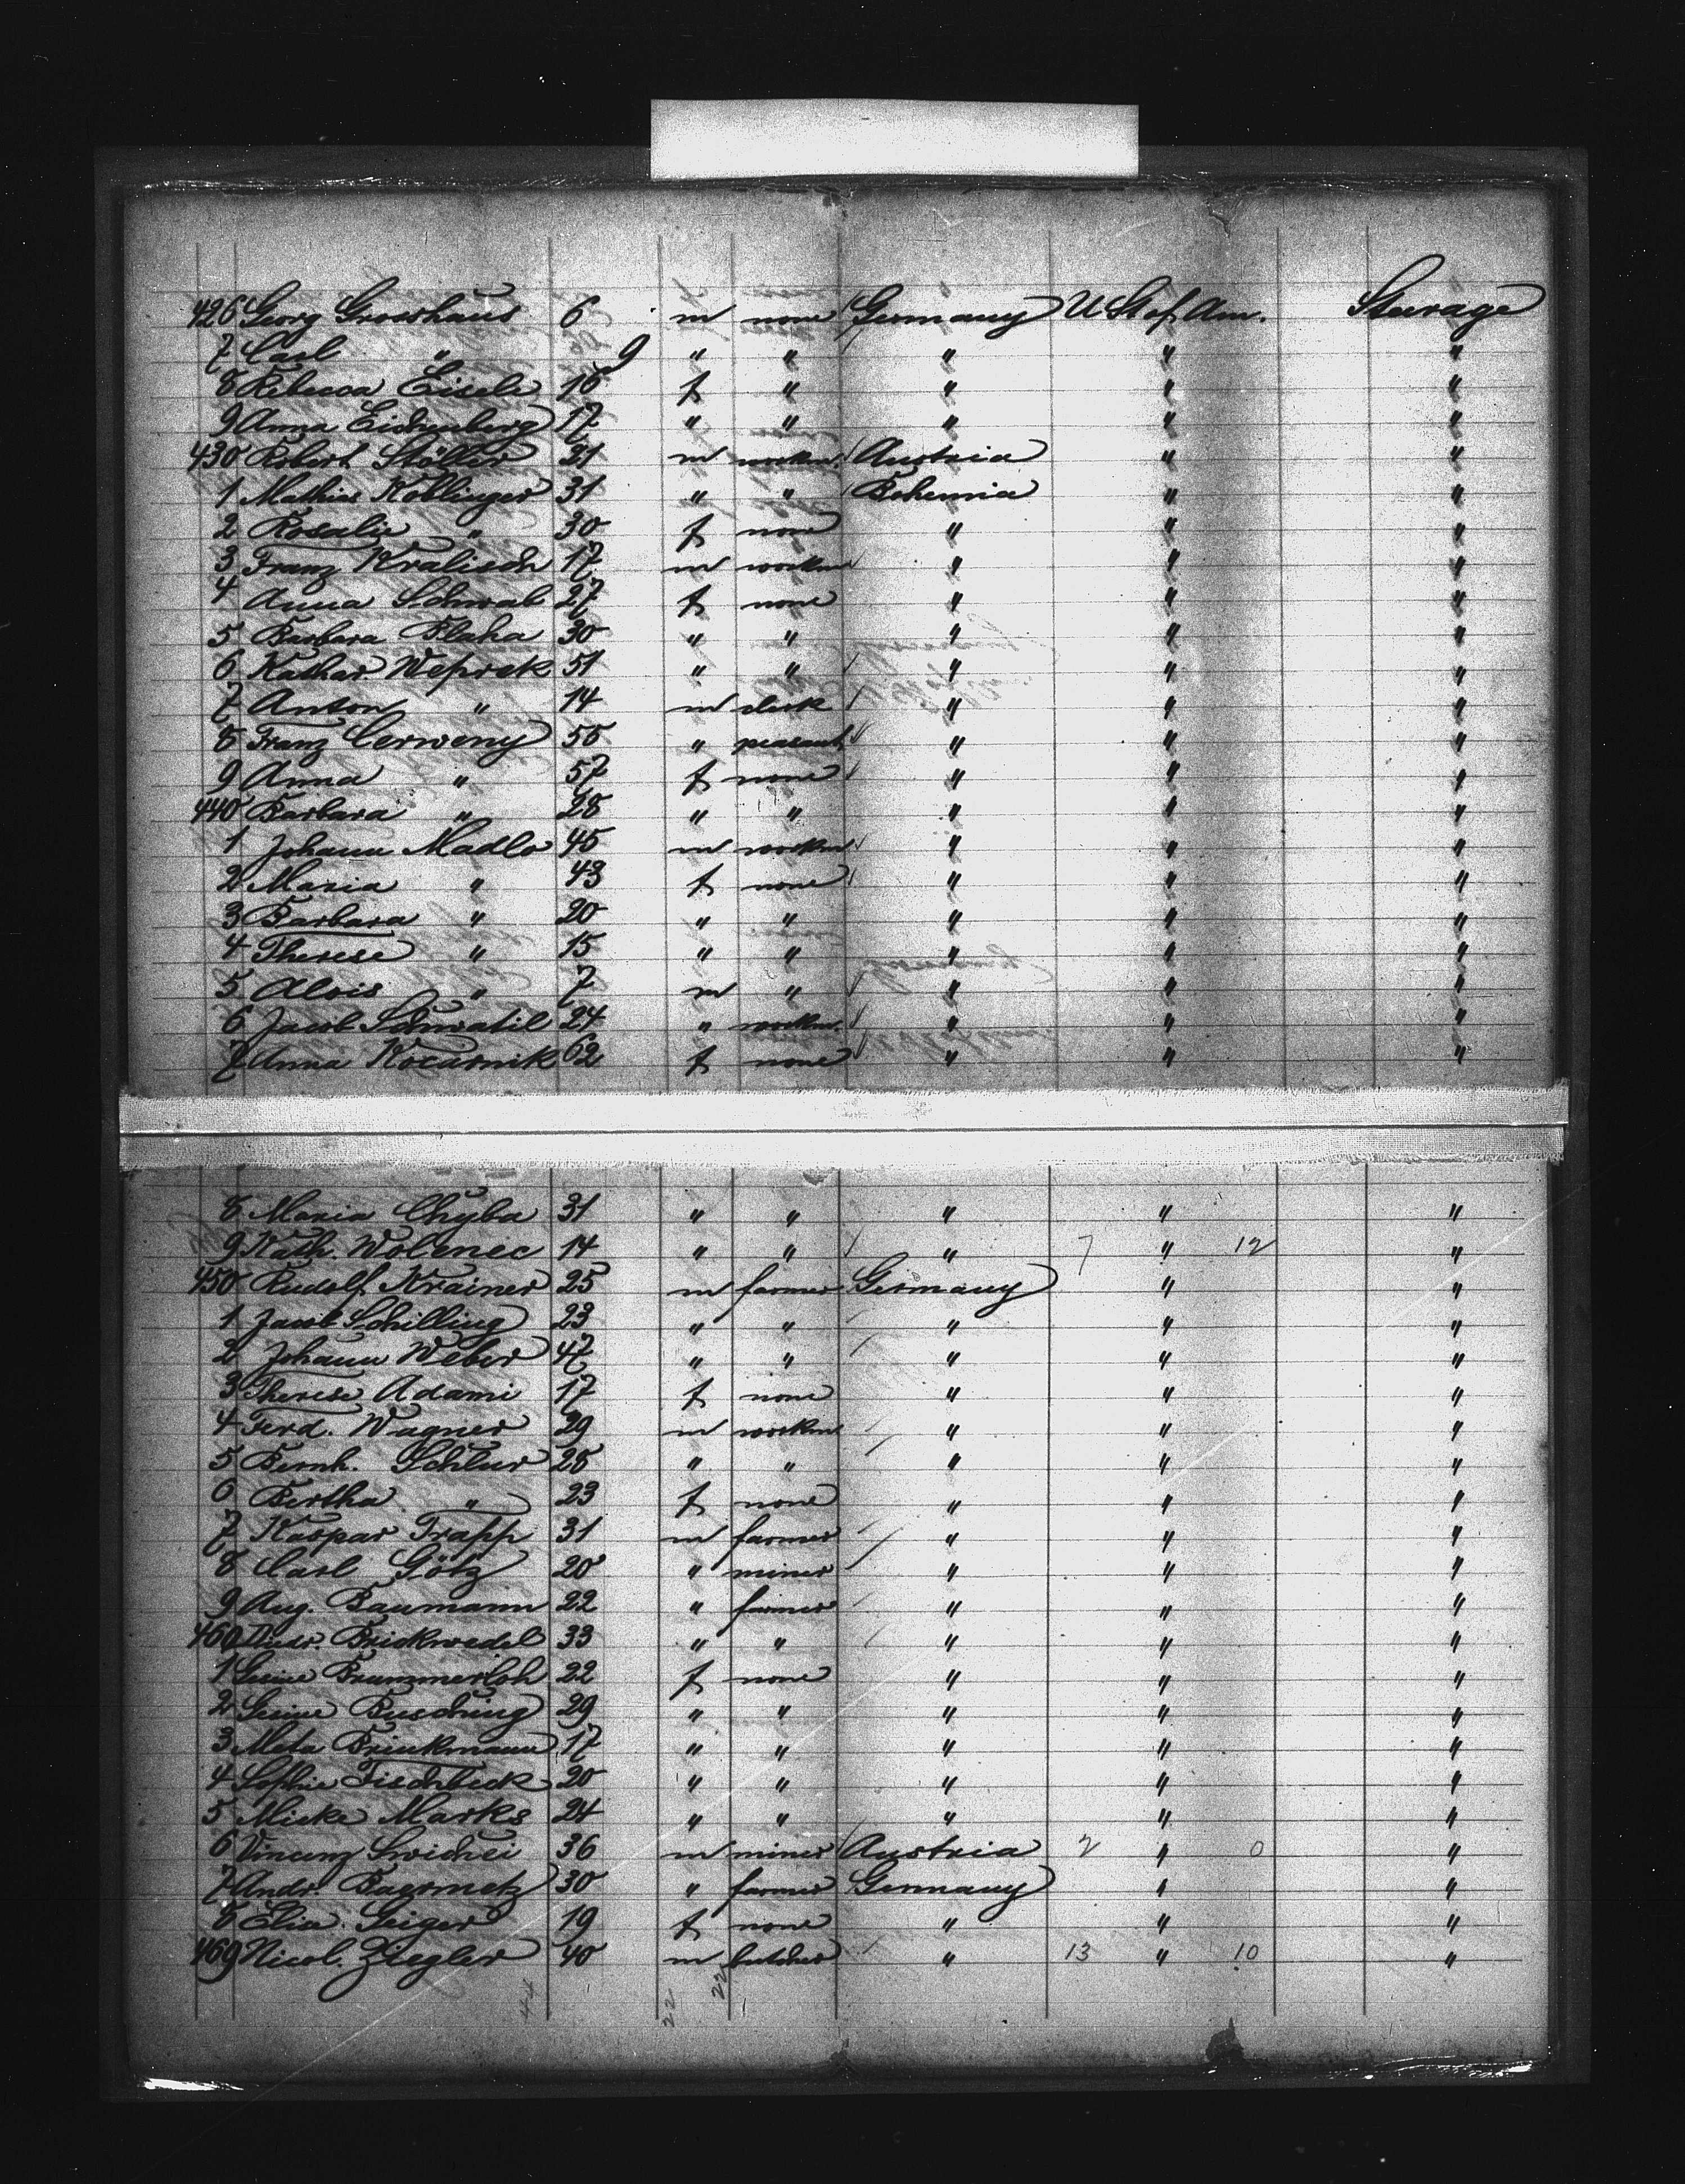 426 Georg Grosshaus 6 m none Germany U St of Am. Steerage
7 Carl " 9 " " " " "
8 Rebecca Eisele 16 f " " " "
9 Anna Eichenberg 17 " " " " "
430 Robert Stöller 21 m workm. Austria " "
1 Mathias Koblinger 31 " " Bohemia " "
2 Rosalie " 30 f none " " "
3 Franz Kralisch 17 m workm " " "
4 Anna Schwab 27 f none " " "
5 Barbara Blaha 30 " " " " "
6 Kathar. Weprek 51 " " " " "
7 Anton " 14 m clerk " " "
8 Franz Cerweny 56 " peasant " " "
9 Anna " 57 f none " " "
440 Barbara " 28 " " " " "
1 Johann Madlo 45 m workm " " "
2 Maria " 43 f none " " "
3 Barbara " 20 " " " " "
4 Therese " 15 " " " " "
5 Alois " 7 m " " " "
6 Jacob 24 " workm. " " "
7 Anna Kocarnik 62 f none " " "
8 Maria Chyba 31 " " " " "
9 Kath. Wolenec 14 " " " 7 " 12 "
450 Rudolf Krainer 25 m farmer Germany " "
1 Jacob Schilling 23 " " " " "
2 Johann Weber 47 " " " " "
3 Therese Adami 17 f none " " "
4 Ferd. Wagner 29 m workm " " "
5 Bernh. 28 " " " " "
6 Bertha " 23 f none " " "
7 Kaspar Trapp 31 m farmer " " "
8 Carl Götz 20 " miner " " "
9 Aug. Baumann 22 " farmer " " "
460 Andr. Brickwedel 33 " " " " "
1 Gesine Brummerloh 22 f none " " "
2 Gesine Busching 29 " " " " "
3 Meta Brinkmann 17 " " " " "
4 Sophie Fischbeck 20 " " " " "
5 Mieke Marks 24 " " " " "
6 Vincenz 36 m miner Austria 2 " 0 "
7 Andr. 30 " farmer Germany " "
8 Elia. Geiger 19 f none " " "
469 Nicol. Ziegler 40 m butcher " 13 " 10 "
44 22 22